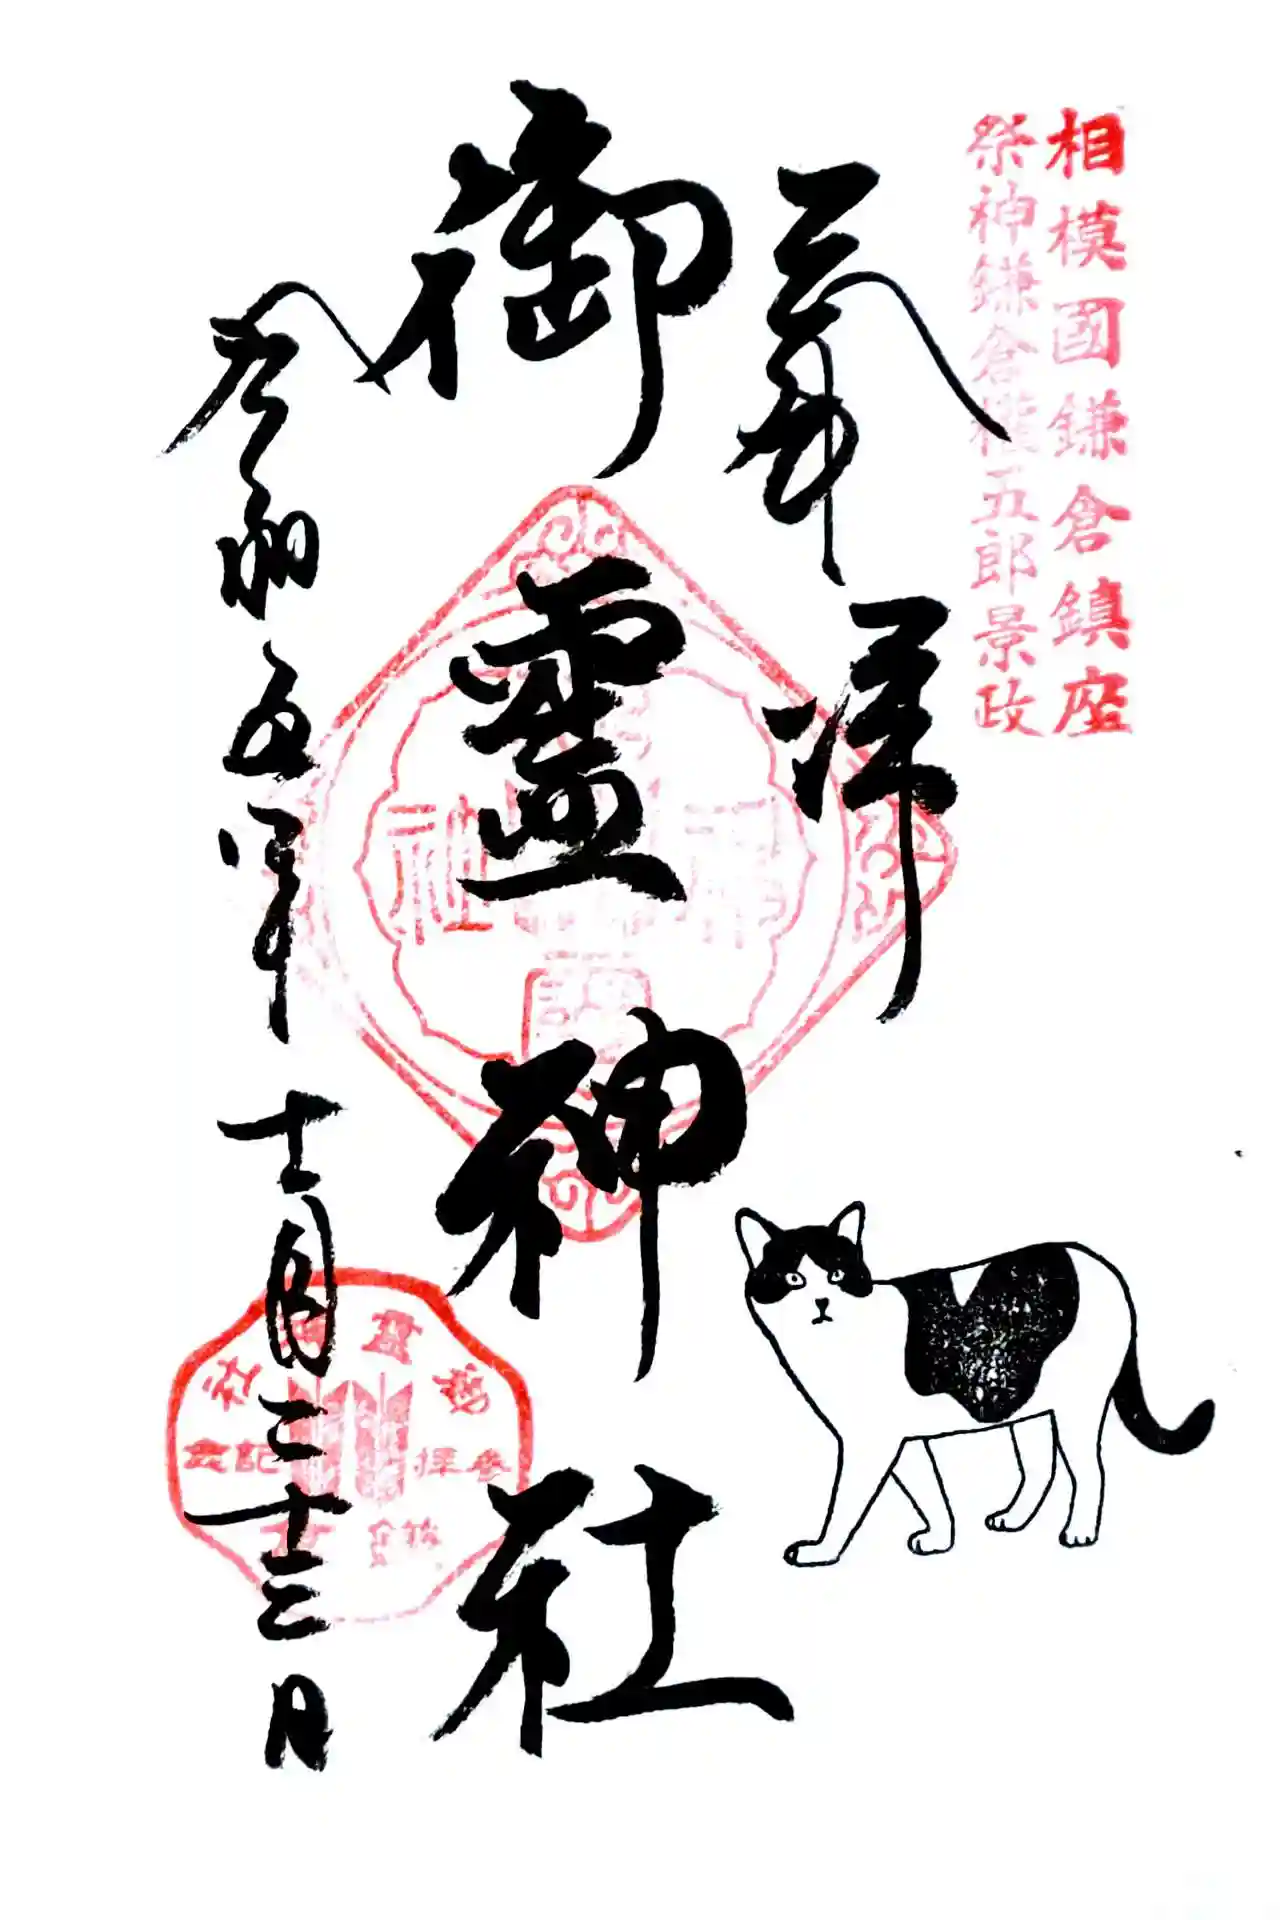 相模國鎌倉鎮座
祭神鎌倉權五郎景政
奉拝
御靈神社
令和五年十一月二十三日